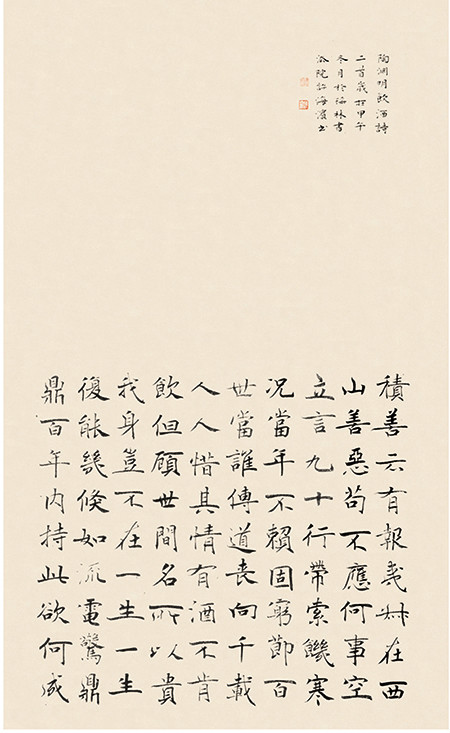 陶渊明飲酒詩
二首歲於甲午
冬月於林書
法院許海濱書
積善云有報夷叔在西
山善惡苟不應何事空
立言九十行帶索饑寒
況當年不賴固窮節百
世當誰傳道喪向千載
人人惜其情有酒不肯
飲但顧世間名所以貴
我身豈不在一生一生
復能幾倏如流電驚鼎
鼎百年內持此欲何成